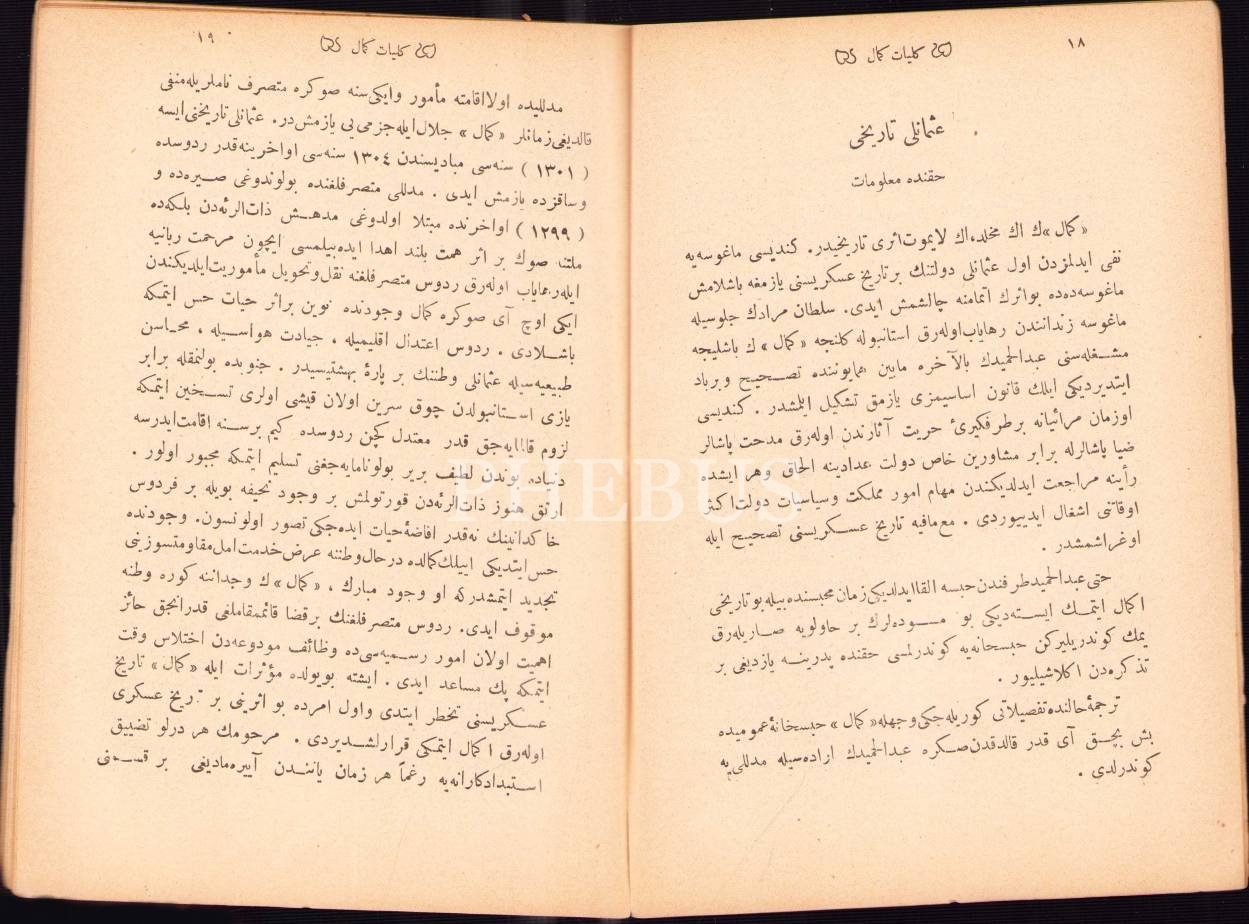 ١٨
كليات كمال
عثمانلی تاریخی
حقنده معلومات
«كمال»ك اك مخلد، اك لایموت اثری تاریخیدر. كندیسی ماغوسه‌یه
نفی ایدلمزدن اول عثمانلی دولتنك بر تاریخ عسكریسنی یازمغه باشلامش
ماغوسه‌ده‌ده بو اثرك اتمامنه چالشمش ایدی. سلطان مرادك جلوسیله
ماغوسه زندانندن رهایاب اوله‌رق استانبوله كلنجه «كمال»ك باشلیجه
مشغله‌سنی عبدالحمیدك بالآخره مابین همایوننده تصحیح و برباد
ایتدیردیكی ایلك قانون اساسیمزی یازمق تشكیل ایلمشدر. كندیسی
اوزمان مرائیانه بر طرفكیرئ حریت آثارندن اوله‌رق مدحت پاشالر
ضیا پاشالرله برابر مشاورین خاص دولت عدادینه الحاق وهر ایشده
رأینه مراجعت ایدلدیكندن مهام امور مملكت وسیاسیات دولت اكثر
اوقاتنی اشغال ایدییوردی. مع‌مافیه تاریخ عسكریسنی تصحیح ایله
اوغراشمشدر.
حتی عبدالحمید طرفندن حبسه القا ایدلدیكی زمان محبسنده بیله بو تاریخی
اكمال ایتمك ایسته‌دیكی بو مسوده‌لرك بر حاولویه صاریله‌رق
یمك كوندریلیركن حبسخانه‌یه كوندرلمسی حقنده پدرینه یازدیغی بر
تذكره‌دن اكلاشیلیور.
ترجمهٔ حالنده تفصیلاتی كوریله‌جكی وجهله «كمال» حبسخانهٔ عمومیده
بش بچق آی قدر قالدقدن صكره عبدالحمیدك اراده‌سیله مدللی‌یه
كوندرلدی.
١٩
كليات كمال
مدللیده اولا اقامته مأمور وایكی سنه صوكره متصرف ناملریله منفی
قالدیغی زمانلر «كمال» جلال ایله جزمی‌یی یازمش‌در. عثمانلی تاریخنی ایسه
(١٣٠١) سنه‌سی مبادیسندن ١٣٠٤ سنه‌سی اواخرینه قدر ردوسده
وساقزده یازمش ایدی. مدللی متصرفلغنده بولوندوغی صیره‌ده و
(١٢٩٩) اواخرنده مبتلا اولدوغی مدهش ذات‌الرئه‌دن بلكه‌ده
ملتنه صوك بر اثر همت بلند اهدا ایده‌بیلمسی ایچون مرحمت ربانیه
ایله رهایاب اوله‌رق ردوس متصرفلغنه نقل وتحویل مأموریت ایلدیكندن
ایكی اوچ آی صوكره كمال وجودنده نوین بر اثر حیات حس ایتمكه
باشلادی. ردوس اعتدال اقلیمیله، جیادت هواسیله، محاسن
طبیعیه‌سیله عثمانلی وطننك بر پارهٔ بهشتیسیدر. جنوبده بولنمقله برابر
یازی استانبولدن چوق سرین اولان قیشی اولری تسخین ایتمكه
لزوم قالمایه‌جق قدر معتدل كچن ردوسده كیم بر سنه اقامت ایدرسه
دنیاده بوندن لطیف بر یر بولونامایه‌جغنی تسلیم ایتمكه مجبور اولور.
ارتق هنوز ذات‌الرئه‌دن قورتولمش بر وجود نحیفه بویله بر فردوس
خاكدانینك نه‌قدر افاضهٔ حیات ایده‌جكی تصور اولونسون. وجودنده
حس ایتدیكی اییلك كمالده درحال وطننه عرض خدمت امل مقاومتسوزینی
تجدید ایتمشدركه او وجود مبارك، «كمال»ك وجداننه كوره وطنه
موقوف ایدی. ردوس متصرفلغنك بر قضا قائممقاملغی قدر انجق حائز
اهمیت اولان امور رسمیه‌سی‌ده وظائف مودوعه‌دن اختلاس وقت
ایتمكه پك مساعد ایدی. ایشته بو یولده مؤثرات ایله «كمال» تاریخ
عسكریسنی تخطر ایتدی واول امرده بو اثرینی بر تاریخ عسكری
اوله‌رق اكمال ایتمكی قرارلشدیردی. مرحومك هر درلو تضییق
استبدادكارانه‌یه رغماً هر زمان یانندن آییره‌مادیغی بر قسمنی
PHEBUS